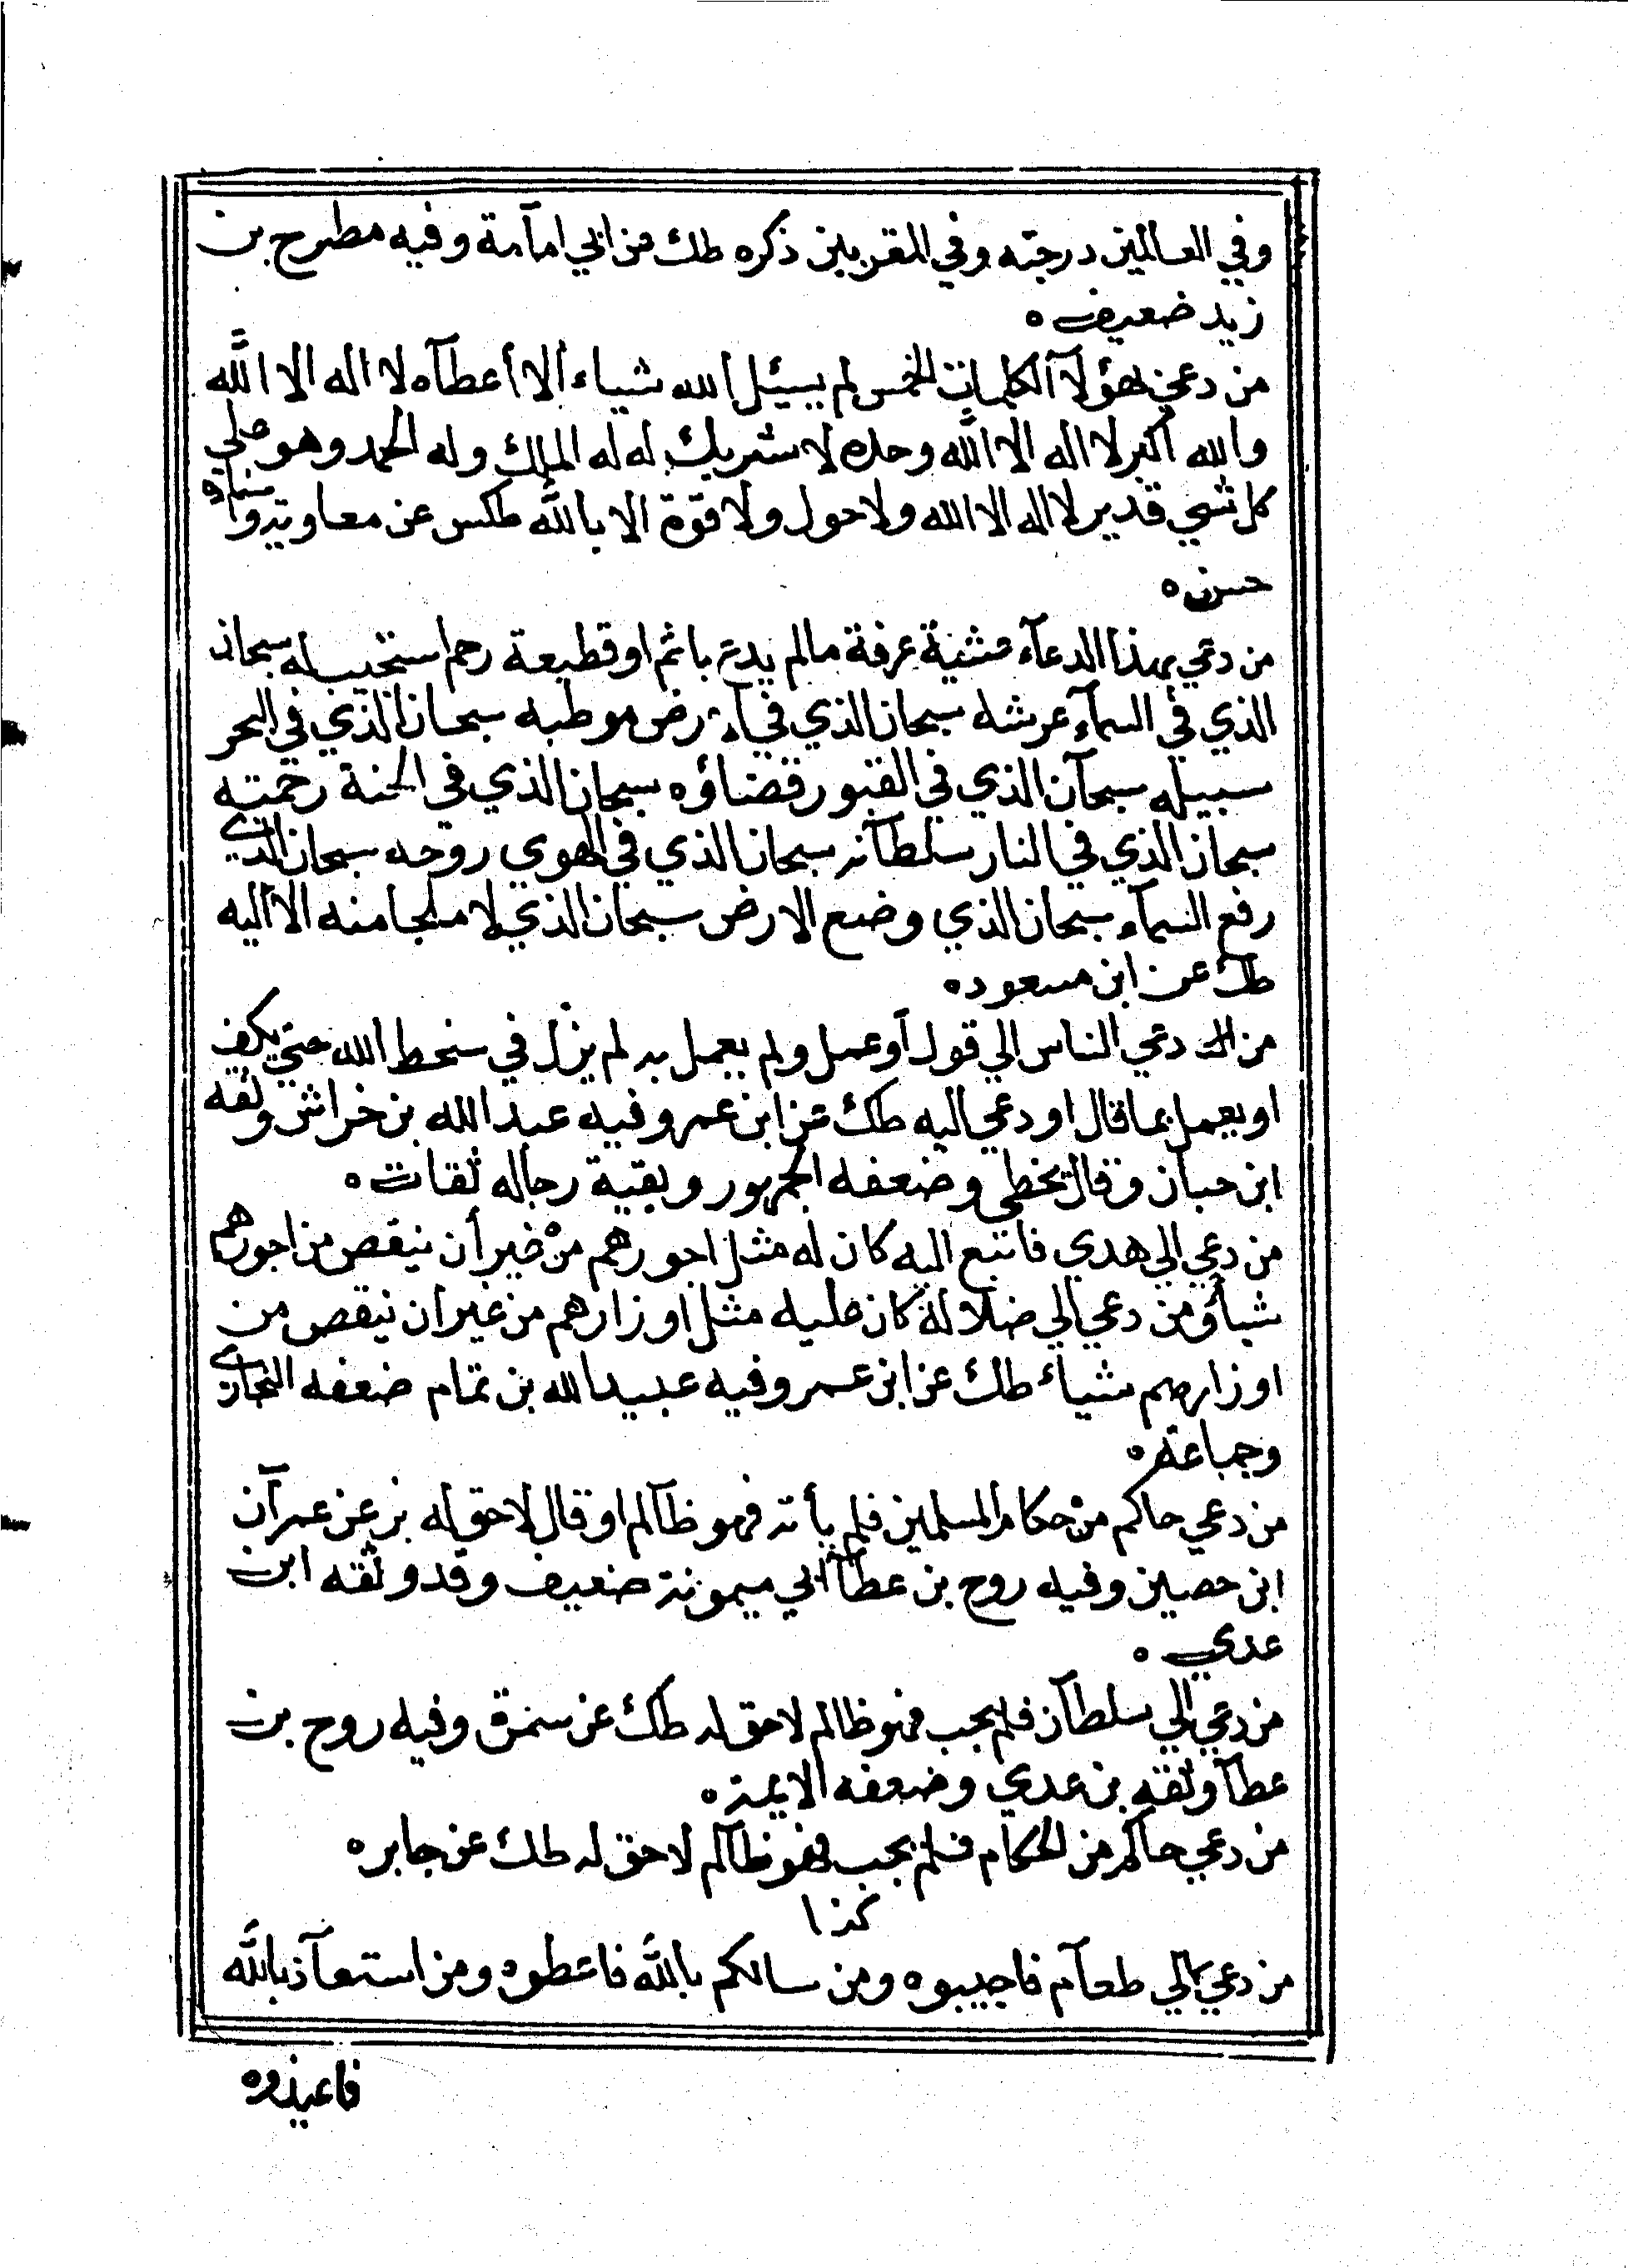 وفي العالمين درجته وفي المقربين ذكره طك عن ابي امآمة وفيه مطرح بن
زيد ضعيف ه
من دعي بهؤلآ الكلمات الخمس لم يسيئل الله شياء الا أعطآه لا اله الا الله
والله أكبر لا اله الا الله وحده لا شريك له له الملك وله الحمد وهو علي
كل شيي قدير لا اله الا الله ولا حول ولا قوة الا بالله طكس عن معاوية واسناده
حسن ه
من دعي بهذا الدعآء عشية عرفة مالم يدع باثم او قطيعة رحم استجيب له سبحان
الذي في السمآء عرشه سبحان الذي في الارض موطيه سبحان الذي في البحر
سبيله سبحآن الذي في القبور قضاؤه سبحان الذي في الجنة رحمته
سبحان الذي في النار سلطآنه سبحان الذي في الهوي روحه سبحان الذي
رفع السمآء سبحان الذي وضع الارض سبحان الذي لا ملجا منه الا اليه
طك عن ابن مسعود ه
من دعي الناس الي قول أو عمل ولم يعمل به لم يزل في سخط الله حتي يكف
او يعمل بما قال او دعي اليه طك عن ابن عمر وفيه عبد الله بن خراش وثقه
ابن حبان وقال يخطي وضعفه الجمهور وبقية رجاله ثقات ه
من دعي الي هدي فاتبع اليه كان له مثل اجورهم من غير أن ينقص من اجورهم
شيأ ومن دعي الي ضلالة كان عليه مثل اوزارهم من غير ان ينقص من
اوزارهم شياء طك عن ابن عمر وفيه عبيد الله بن تمام ضعفه البخاري
وجماعة ه
من دعي حاكم من حكام المسلمين فلم يأته فهو ظآلم او قال لا حق له بز عن عمرآن
ابن حصين وفيه روح بن عطآ ابي ميمونة ضعيف وقد وثقه ابن
عدي ه
من دعي الي سلطآن فلم يجب فهو ظالم لا حق له طك عن سمرة وفيه روح بن
عطآ وثقه بن عدي وضعفه الايمة ه
من دعي حاكم من الحكام فلم يجب فهو ظآلم لا حق له طك عن جابر ه
كذا
من دعي الي طعآم فاجيبوه ومن سالكم بالله فاعطوه ومن استعآذ بالله
فاعيذوه